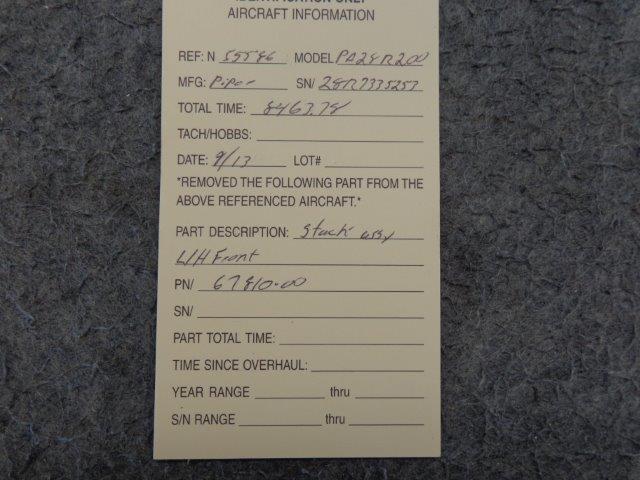 IDENTIFICATION ONLY
AIRCRAFT INFORMATION
REF: N 55586 MODEL PA28R200
MFG: Piper SN/ 28R7335253
TOTAL TIME: 8463.78
TACH/HOBBS:
DATE: 9/13 LOT#
*REMOVED THE FOLLOWING PART FROM THE
ABOVE REFERENCED AIRCRAFT.*
PART DESCRIPTION: Stack assy
L/H Front
PN/ 67810-00
SN/
PART TOTAL TIME:
TIME SINCE OVERHAUL:
YEAR RANGE thru
S/N RANGE thru